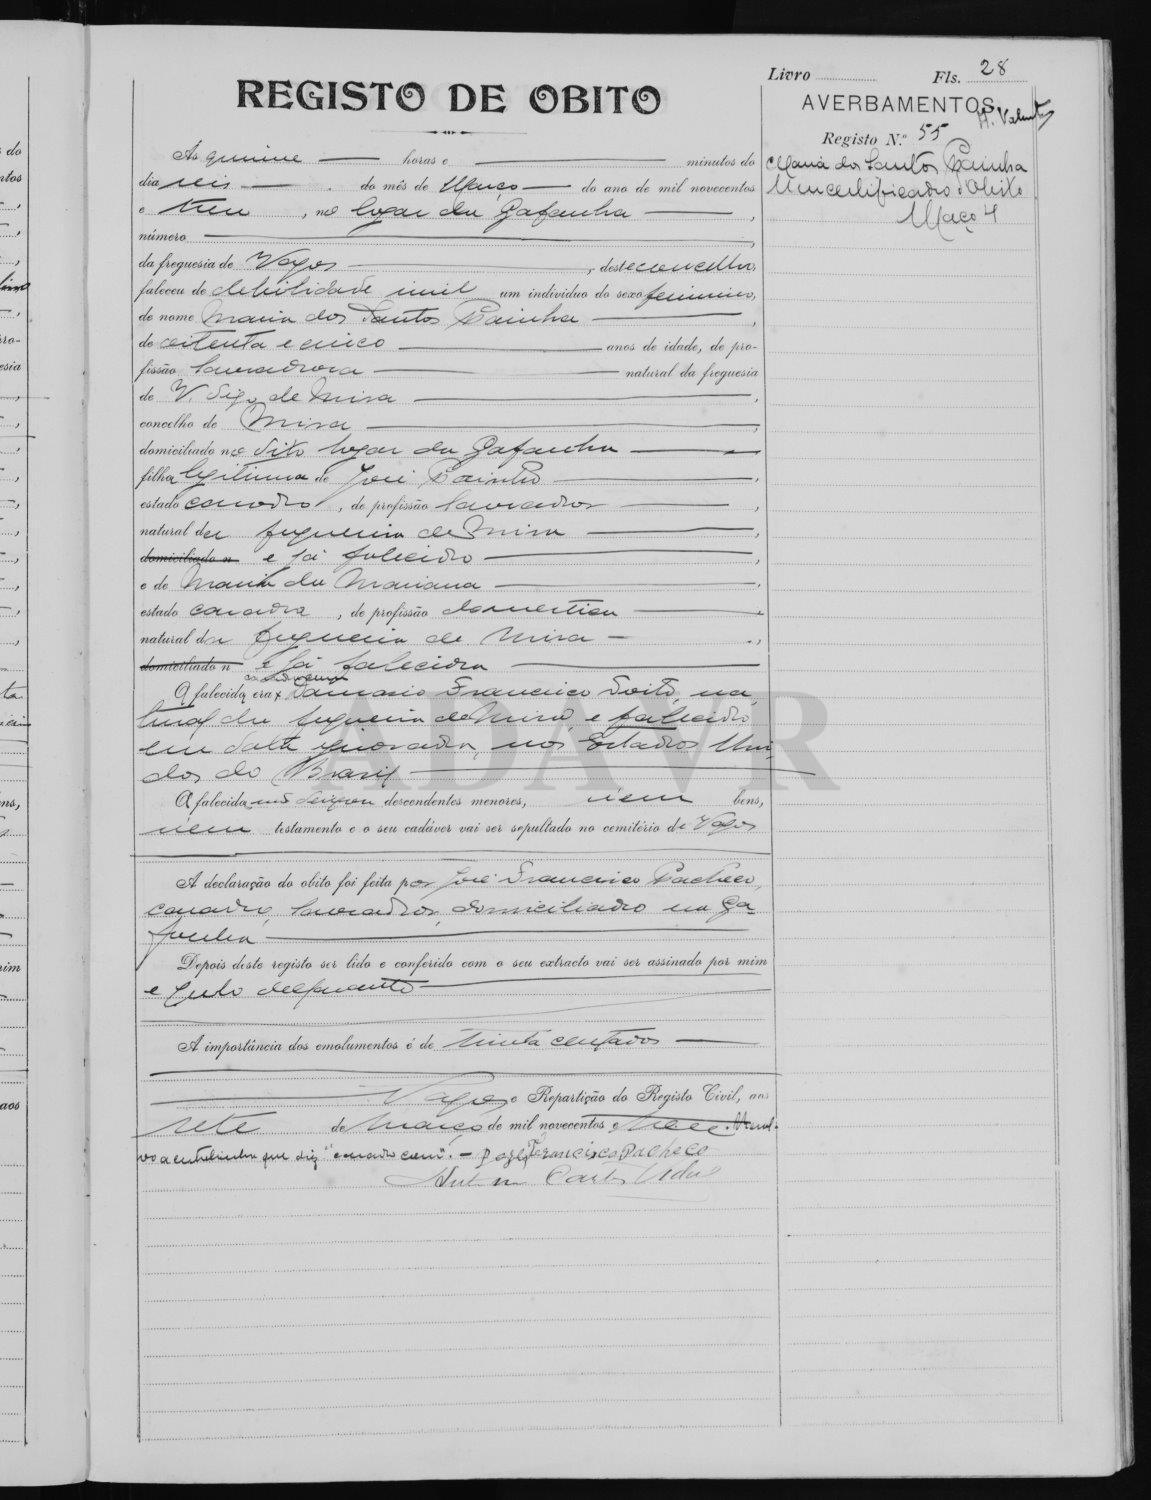 Livro Fls. 28
REGISTO DE OBITO
AVERBAMENTOS
Registo N.º 55
Maria dos Santos Painha
Um certificado d'Obito
Maço 4
Ás quinze horas e minutos do
dia seis do mês de Março do ano de mil novecentos
e treze, no logar da Gafanha,
número
da freguesia de Vagos, deste concelho,
faleceu de debilidade senil um individuo do sexo feminino,
de nome Maria dos Santos Painha,
de oitenta e cinco anos de idade, de pro-
fissão lavradora natural da freguesia
de Mira,
concelho de Mira,
domiciliado no dito logar da Gafanha,
filha legitima de José Painho,
estado casado, de profissão lavrador,
natural da freguesia de Mira,
domiciliado n e já falecido,
e de Maria da Mariana,
estado casada, de profissão domestica,
natural da freguesia de Mira,
domiciliado n e já falecida
O falecida era casada com Francisco na
tural da freguesia de Mira e falecido
em data ignorada, nos Estados Uni-
dos do Brasil
A falecida não deixou descendentes menores, nem bens,
nem testamento e o seu cadáver vai ser sepultado no cemitério de Vagos
A declaração do obito foi feita por José Francisco Pacheco,
casado, lavrador, domiciliado na Ga-
fanha
Depois deste registo ser lido e conferido com o seu extracto vai ser assinado por mim
e pelo declarante
A importância dos emolumentos é de trinta centavos
Vagos e Repartição do Registo Civil, aos
sete de Março de mil novecentos e treze. Resal-
vo a entrelinha que diz "casada com". - José Francisco Pacheco
ADAVR